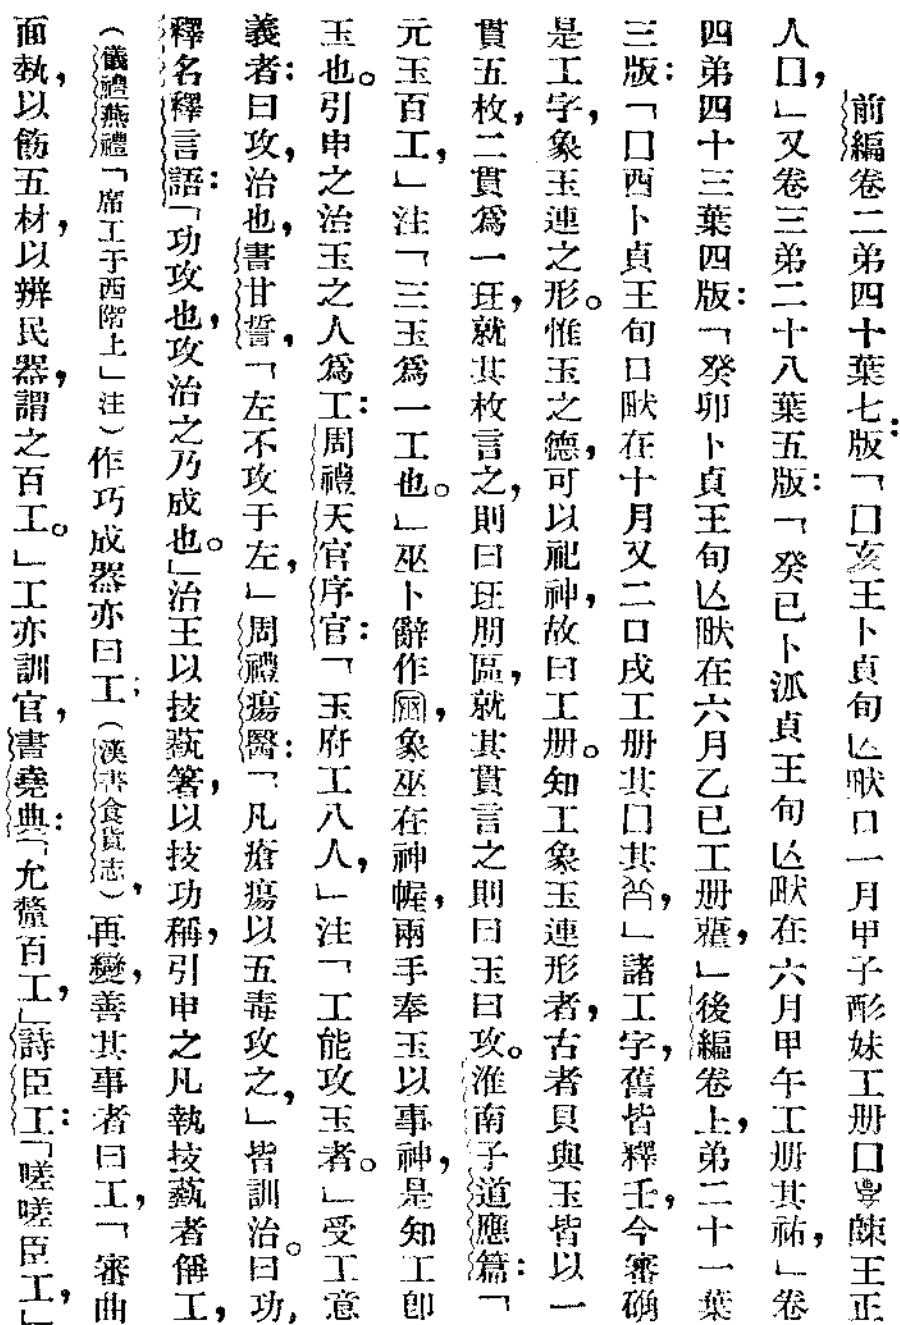 前編卷二第四十葉七版：「囗亥王卜貞旬亾㕢口一月甲子酌妹工册囗豊餗王正
人囗，」又卷三弟二十八葉五版：「癸已卜派貞王旬亾㕢在六月甲午工册其祐，」卷
四弟四十三葉四版：「癸卯卜貞王旬亾㕢在六月乙已工册雚，」後編卷上，弟二十一葉
三版：「囗酉卜貞王旬口㕢在十月又二口戌工册其囗其，」諸工字，舊皆釋壬，今審确
是工字，象玉連之形。惟玉之德，可以祀神，故曰工册。知工象玉連形者，古者貝與玉皆以一
貫五枚，二貫爲一玨，就其枚言之，則曰玨朋區，就其貫言之則曰玉曰攻。淮南子道應篇：「
元玉百工，」注「三玉爲一工也。」巫卜辭作，象巫在神幄，兩手奉玉以事神，是知工卽
玉也。引申之治玉之人爲工：周禮天官序官：「玉府工八人，」注「工能攻玉者。」受工意
義者：曰攻，治也，書甘誓，「左不攻于左，」周禮瘍醫：「凡瘡瘍以五毒攻之，」皆訓治。曰功，
釋名釋言語：「功攻也，攻治之乃成也。」治王以技蓺箸，以技功稱，引申之凡執技蓺者偁工，
（儀禮燕禮「席工于西階上」注）作巧成器亦曰工；（漢書食貨志，）再變，善其事者曰工，「審曲
面埶，以飭五材，以辨民器，謂之百工。」工亦訓官，書堯典：「允釐百工，」詩臣工：「嗟嗟臣工，」